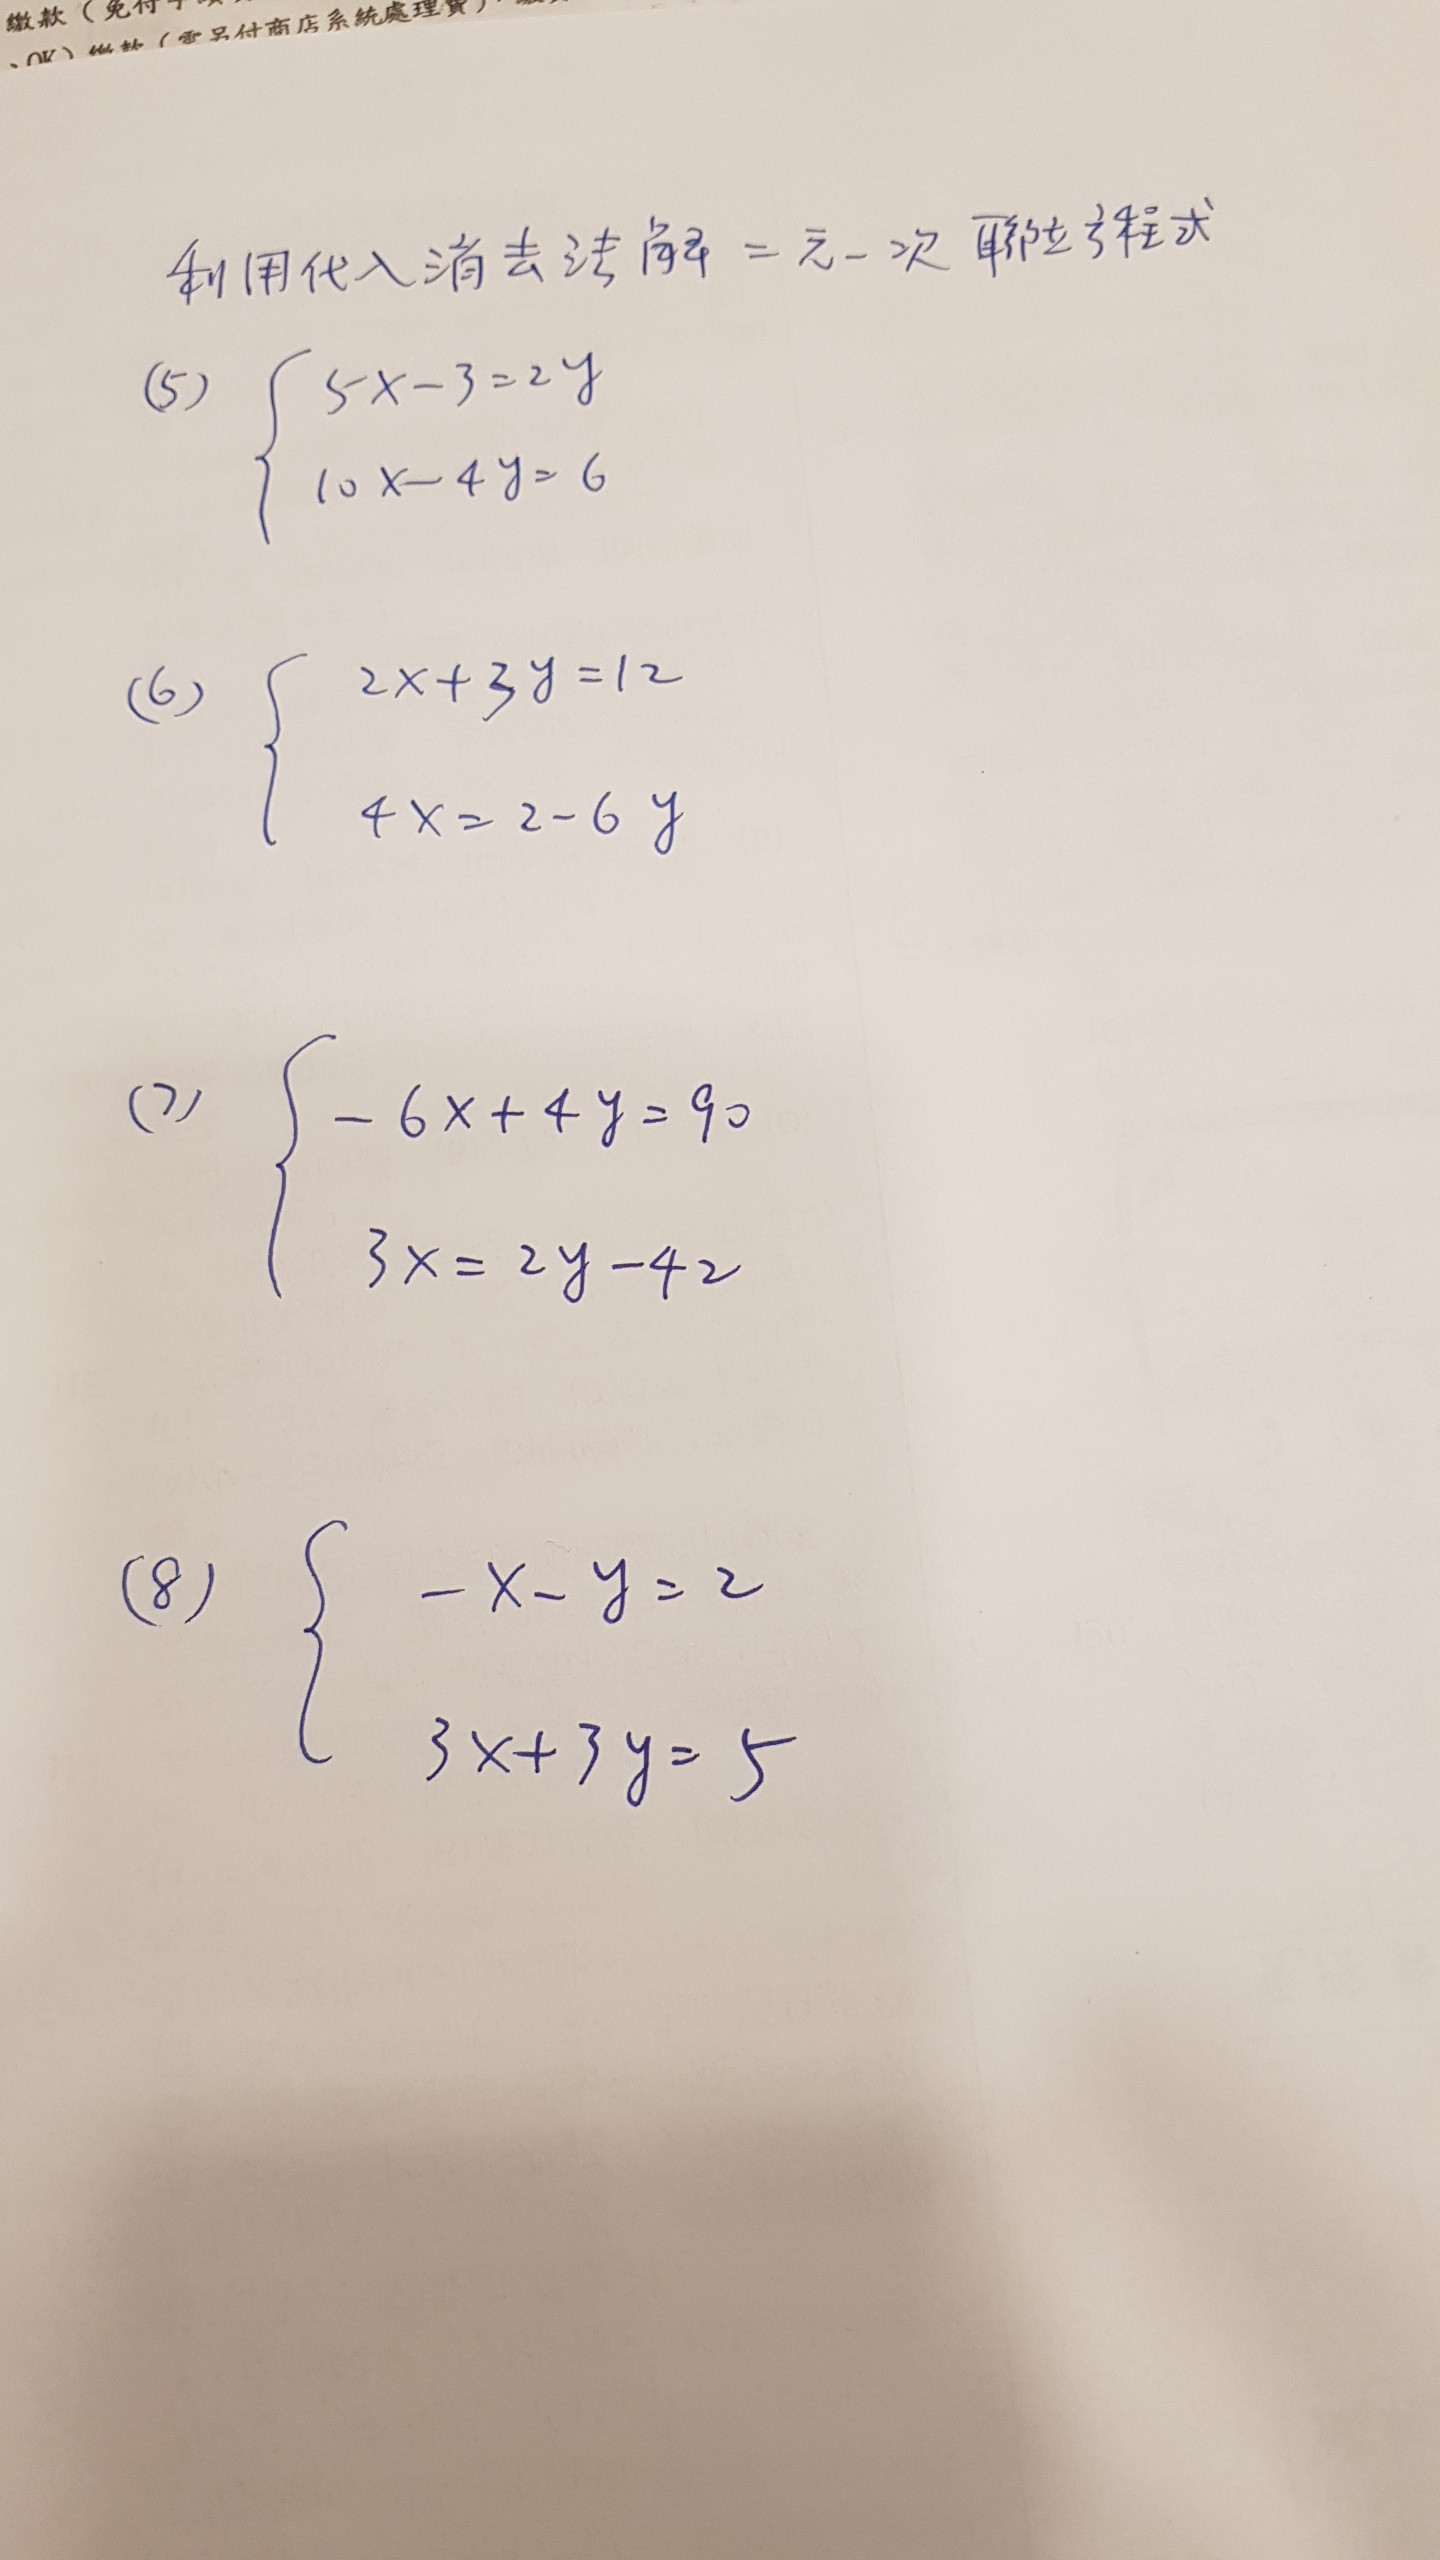 繳款（免付手續
、OK）繳款（需另付商店系統處理費）
利用代入消去法解二元一次聯立方程式
(5) 5x-3=2y
10x-4y=6
(6) 2x+3y=12
4x=2-6y
(7) -6x+4y=90
3x=2y-42
(8) -x-y=2
3x+3y=5